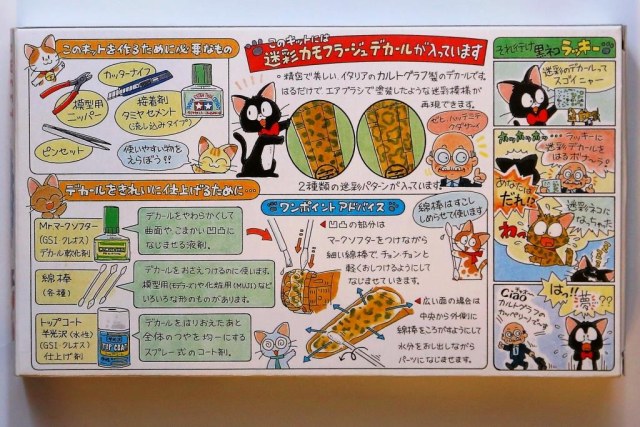 このキットを作るために必要なもの
カッターナイフ
模型用
ニッパー
接着剤
タミヤセメント
(流し込みタイプ)
ピンセット
使いやすい物を
えらぼう!!
このキットには
迷彩カモフラージュデカールが入っています
精密で美しい、イタリアのカルトグラフ製のデカールです。
はるだけで、エアブラシで塗装したような迷彩模様が
再現できます。
ゼヒ、ハッテミテ
クダサーイ
2種類の迷彩パターンが入っています。
デカールをきれいに仕上げるために…
Mr.マークソフター
(GSIクレオス)
デカール軟化剤
デカールをやわらかくして
曲面や、こまかい凹凸に
なじませる液剤。
綿棒
(各種)
デカールをおさえつけるのに使います。
模型用(モデラーズ)や化粧用(MUJI)など
いろいろな形のものがあります。
トップコート
半光沢(水性)
(GSIクレオス)
仕上げ剤
TOP COAT
デカールをはりおえたあと
全体のつやを均一にする
スプレー式のコート剤。
ワンポイントアドバイス
凹凸の部分は
マークソフターをつけながら
細い綿棒で、チョンチョンと
軽くおしつけるようにして
なじませていきます。
綿棒はすこし
しめらせて使います
広い面の場合は
中央から外側に
綿棒をころがすようにして
水分をおし出しながら
パーツになじませます。
それ行け黒ネコラッキー
迷彩のデカールって
スゴイニャー
ラッキーに
迷彩デカールを
はるボナ〜ら♪
あなたは
だれ!?
迷彩ネコに
なっちゃった
Ciao
カルトグラフの
カッペリーニです
はっ!!
夢??